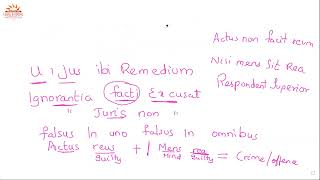 Actus non facit reum
Nisi mens Sit Rea
Respondent Superior
U i jus ibi Remedium
Ignorantia facti Excusat
" Juris non "
falsus In uno falsus in omnibus
Actus reus + Mens rea = Crime/offence
guilty Mind guilty